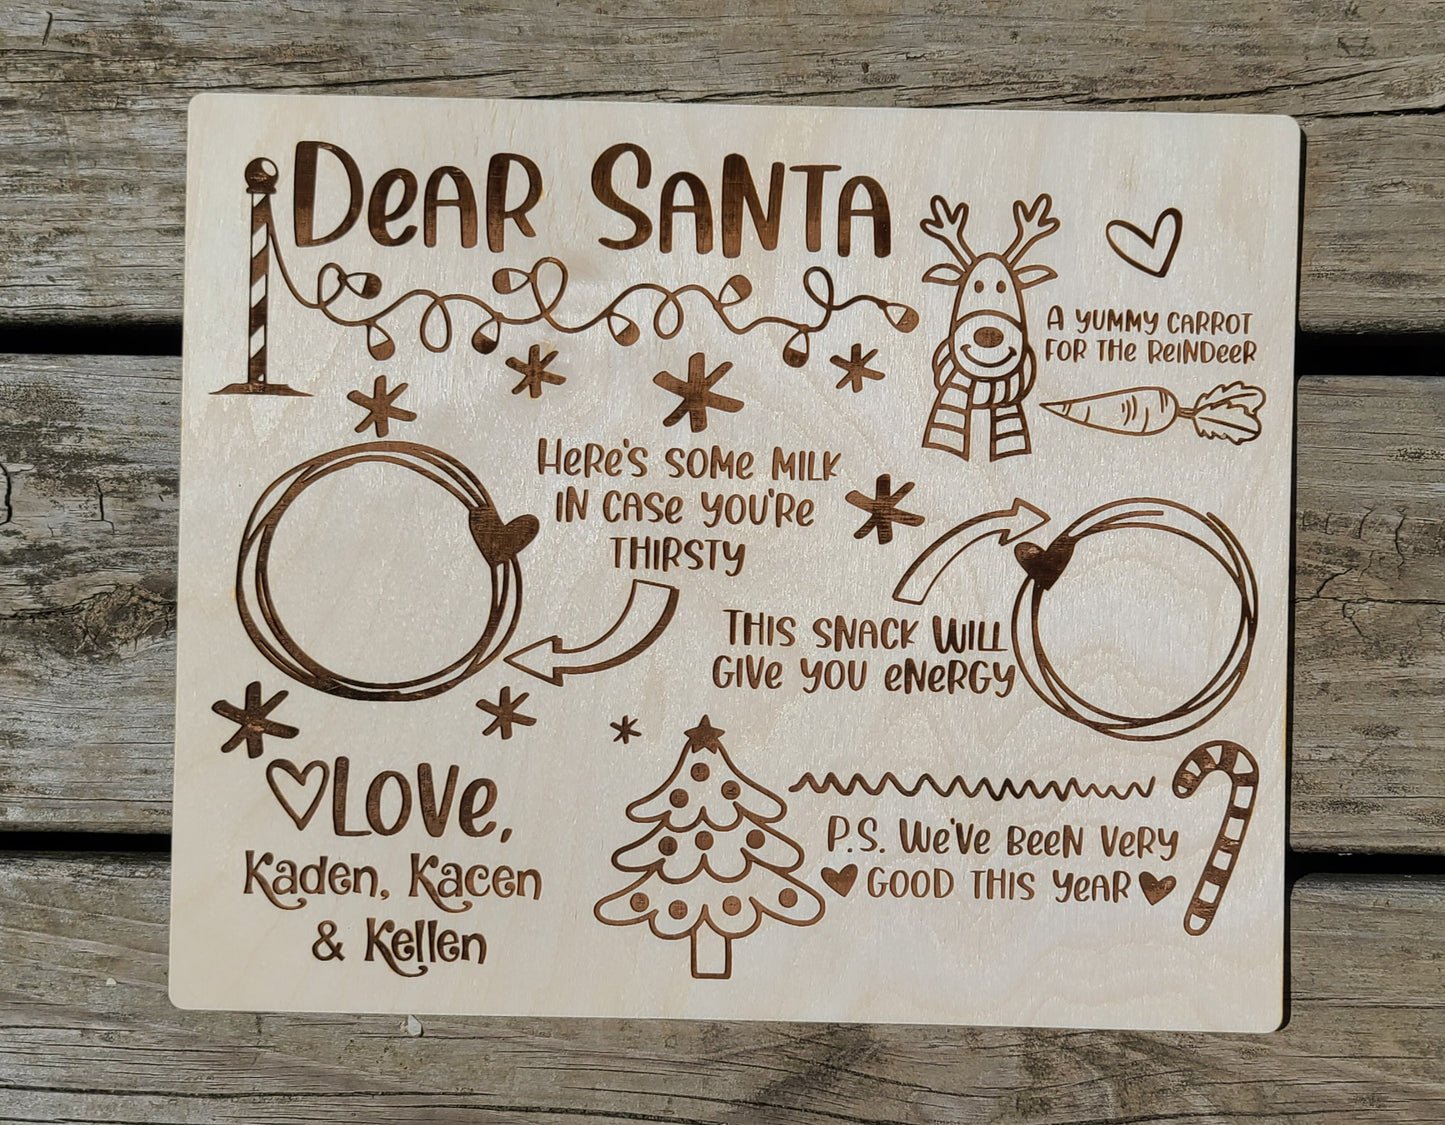 DeAR SANTA
A YUMMY CARROT
FOR THe ReINDeeR
HeRe'S SOMe MILK
IN CASe YOU'Re
THIRSTY
THIS SNACK WILL
GIVe YOU eNeRGY
LOVe,
Kaden, Kacen
& Kellen
P.S. We'Ve BeeN VeRY
GOOD THIS YeAR